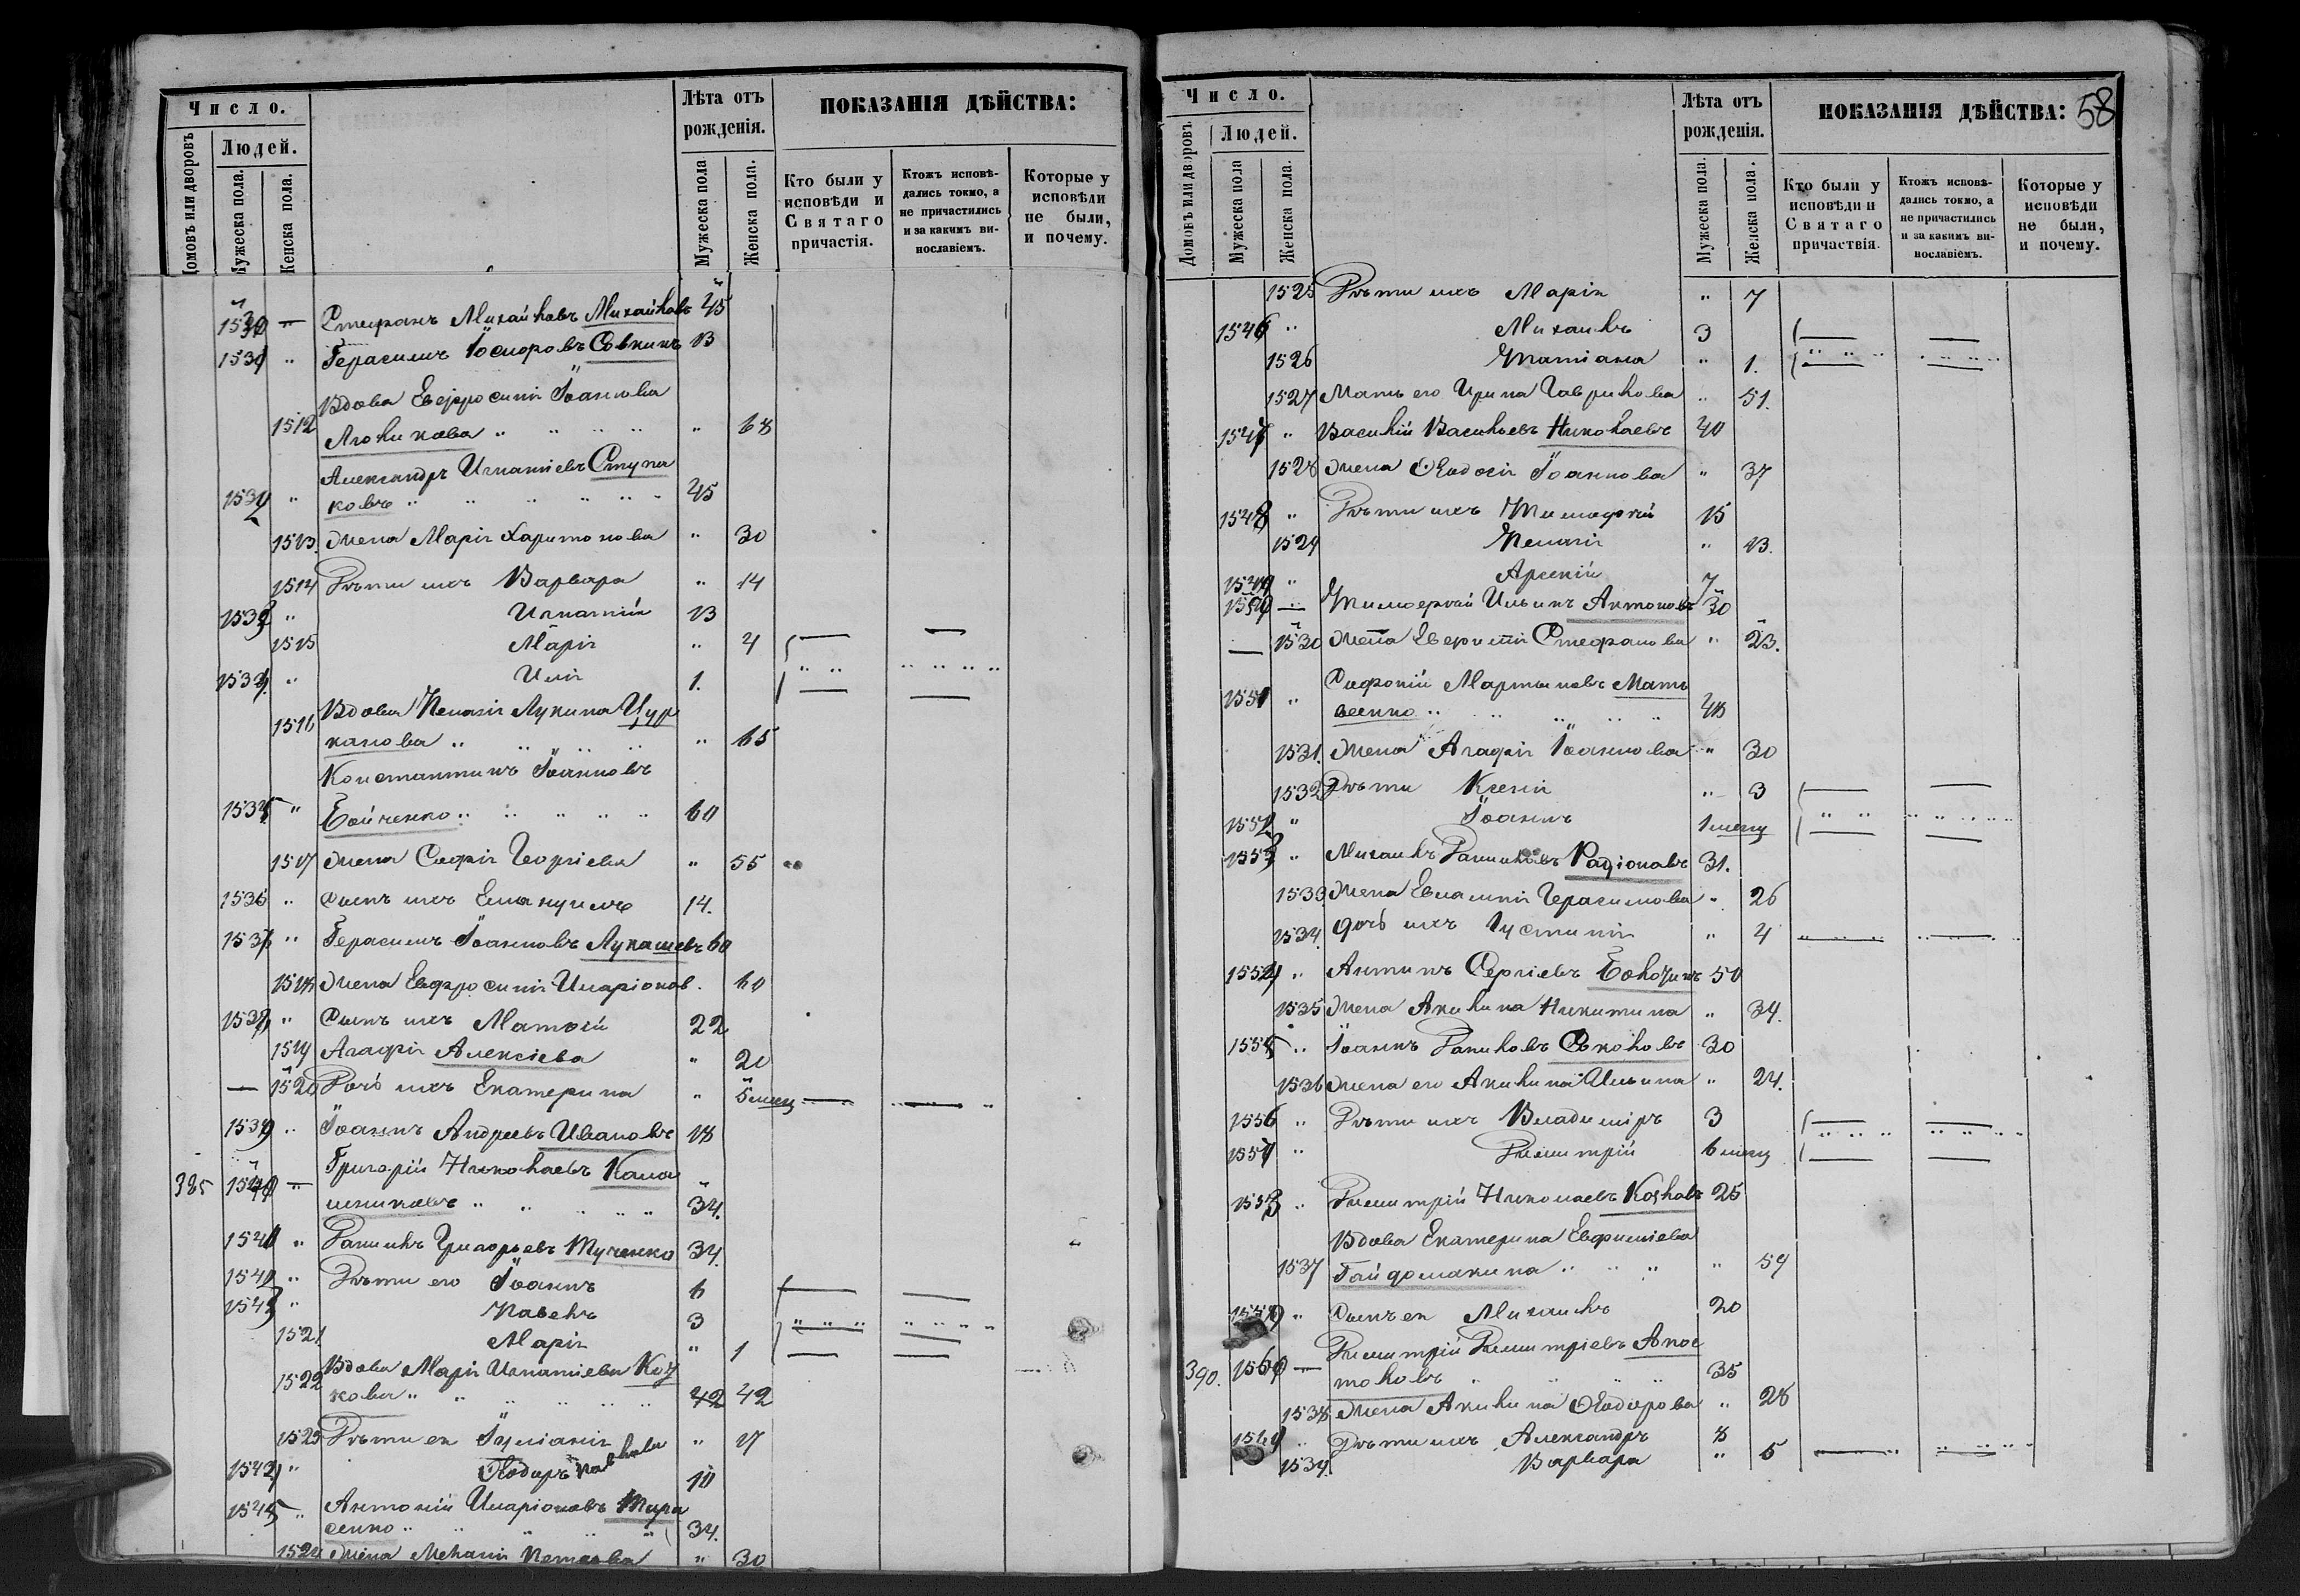 Число.
Лѣта отъ рожденія.
ПОКАЗАНІЯ ДѢЙСТВА:
Людей.
Домовъ или дворовъ
Мужеска пола.
Женска пола.
Мужеска пола
Женска пола.
Кто были у исповѣди и Святаго причастія.
Ктожъ исповѣдались токмо, а не причастились и за какимъ винославіемъ.
Которые у исповѣди не были, и почему.
Стефанъ Михайловъ Михайловъ 45
Герасимъ
Вдова Евфросинія Іоаннова
1512 " 68
Александръ Игнатіевъ Ступа
ковъ " 45
1513 жена Марія Харитонова " 30
1514 Дѣти ихъ Варвара " 14
" Игнатій 13
1515 Марія " 4
" Илія 1.
Вдова Пелагія Лукина Цур
1516 канова " 65
Константинъ Іоанновъ
1535 " Бойченко 60
1517 жена Софія Георгіева " 55
1536 " сынъ ихъ Емануилъ 14.
1537 " Герасимъ Іоанновъ Лукашевъ 60
1518 жена Евфросинія Иларіонов. 60
1538 " Сынъ ихъ Матѳей 22
1519 Агафія Алексіева " 20
1520 Дочь ихъ Екатерина " 5 мѣсц
1539 " Іоаннъ Андреевъ Ивановъ 18
Григорій Николаевъ Кала
385 1540 шниковъ " 34.
1541 " Даніилъ Григорьевъ Тученко 34.
1542 " Дѣти его Іоаннъ 6
1543 " Павелъ 3
1521 Марія " 1
1522 Вдова Марія Игнатіева Коз
кова " 42 42
1523 Дѣти ея Іуліанія " 17
1544 " Ѳеодоръ Павловы 10
1545 " Антоній Иларіоновъ Тара
сенко " 34.
1524 жена " 30
Число.
Лѣта отъ рожденія.
ПОКАЗАНІЯ ДѢЙСТВА:
58
Людей.
Домовъ или дворовъ.
Мужеска пола
Женска пола.
Мужеска пола.
Женска пола.
Кто были у исповѣди и Святаго причаствія.
Ктожъ исповѣдались токмо, а не причастились и за какимъ винославіемъ.
Которые у исповѣди не были, и почему.
1525 Дѣти ихъ Марія " 7
1546 " Михаилъ 3
1526 Татіана " 1.
1527 Мать его Ирина Гаврилова " 51.
1547 " Василій Васильевъ Николаевъ 40
1528 жена Ѳеодосія Іоаннова " 37
1548 " Дѣти ихъ Тимофей 15
1529 Пелагія " 13.
1549 " Арсеній 7
1550 Тимофей Ильинъ Антоновъ 30
1530 жена Стефанова " 23.
1551 " Мартыновъ Мат
веенко "
1531. жена Агафія Іоаннова " 30
1532 Дѣти Ксенія " 3
1552 " Іоаннъ 1 мѣсц
1553 " Михаилъ Даниловъ Радіоновъ 31.
1533 жена Евлампія Герасимова " 26
1534. дочь ихъ Іустинія " 4
1554 " Антипъ Сергіевъ 50
1535 жена Акилина Никитина " 34.
1555 " Іоаннъ Даниловъ Соколовъ 30
1536 жена его Акилина Ильина " 24.
1556 " Дѣти ихъ Владиміръ 3
1557 " Димитрій 6 мѣсц
" Димитрій Николаевъ Козловъ 25
Вдова Екатерина Евфиміева
1537 Гайдомакина " 59
1559 " Сынъ ея Михаилъ 20
Димитрій Димитріевъ Апос
390. 1560 толовъ " 35
1538 жена Акилина Ѳеодорова " 28
1561 " Дѣти ихъ Александръ 8
1539 Варвара " 5